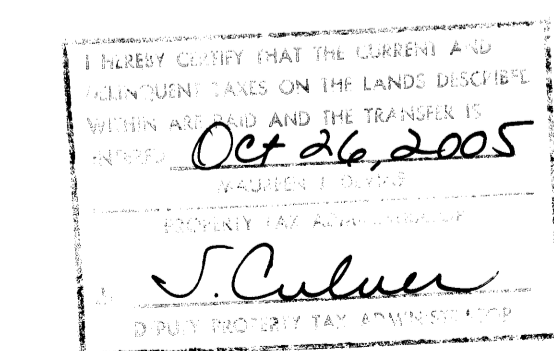 I HEREBY CERTIFY THAT THE CURRENT AND
DELINQUENT TAXES ON THE LANDS DESCRIBED
WITHIN ARE PAID AND THE TRANSFER IS
ENTERED Oct 26, 2005
MAUREEN J. DEVINE
PROPERTY TAX ADMINISTRATOR
J. Culver
DEPUTY PROPERTY TAX ADMINISTRATOR